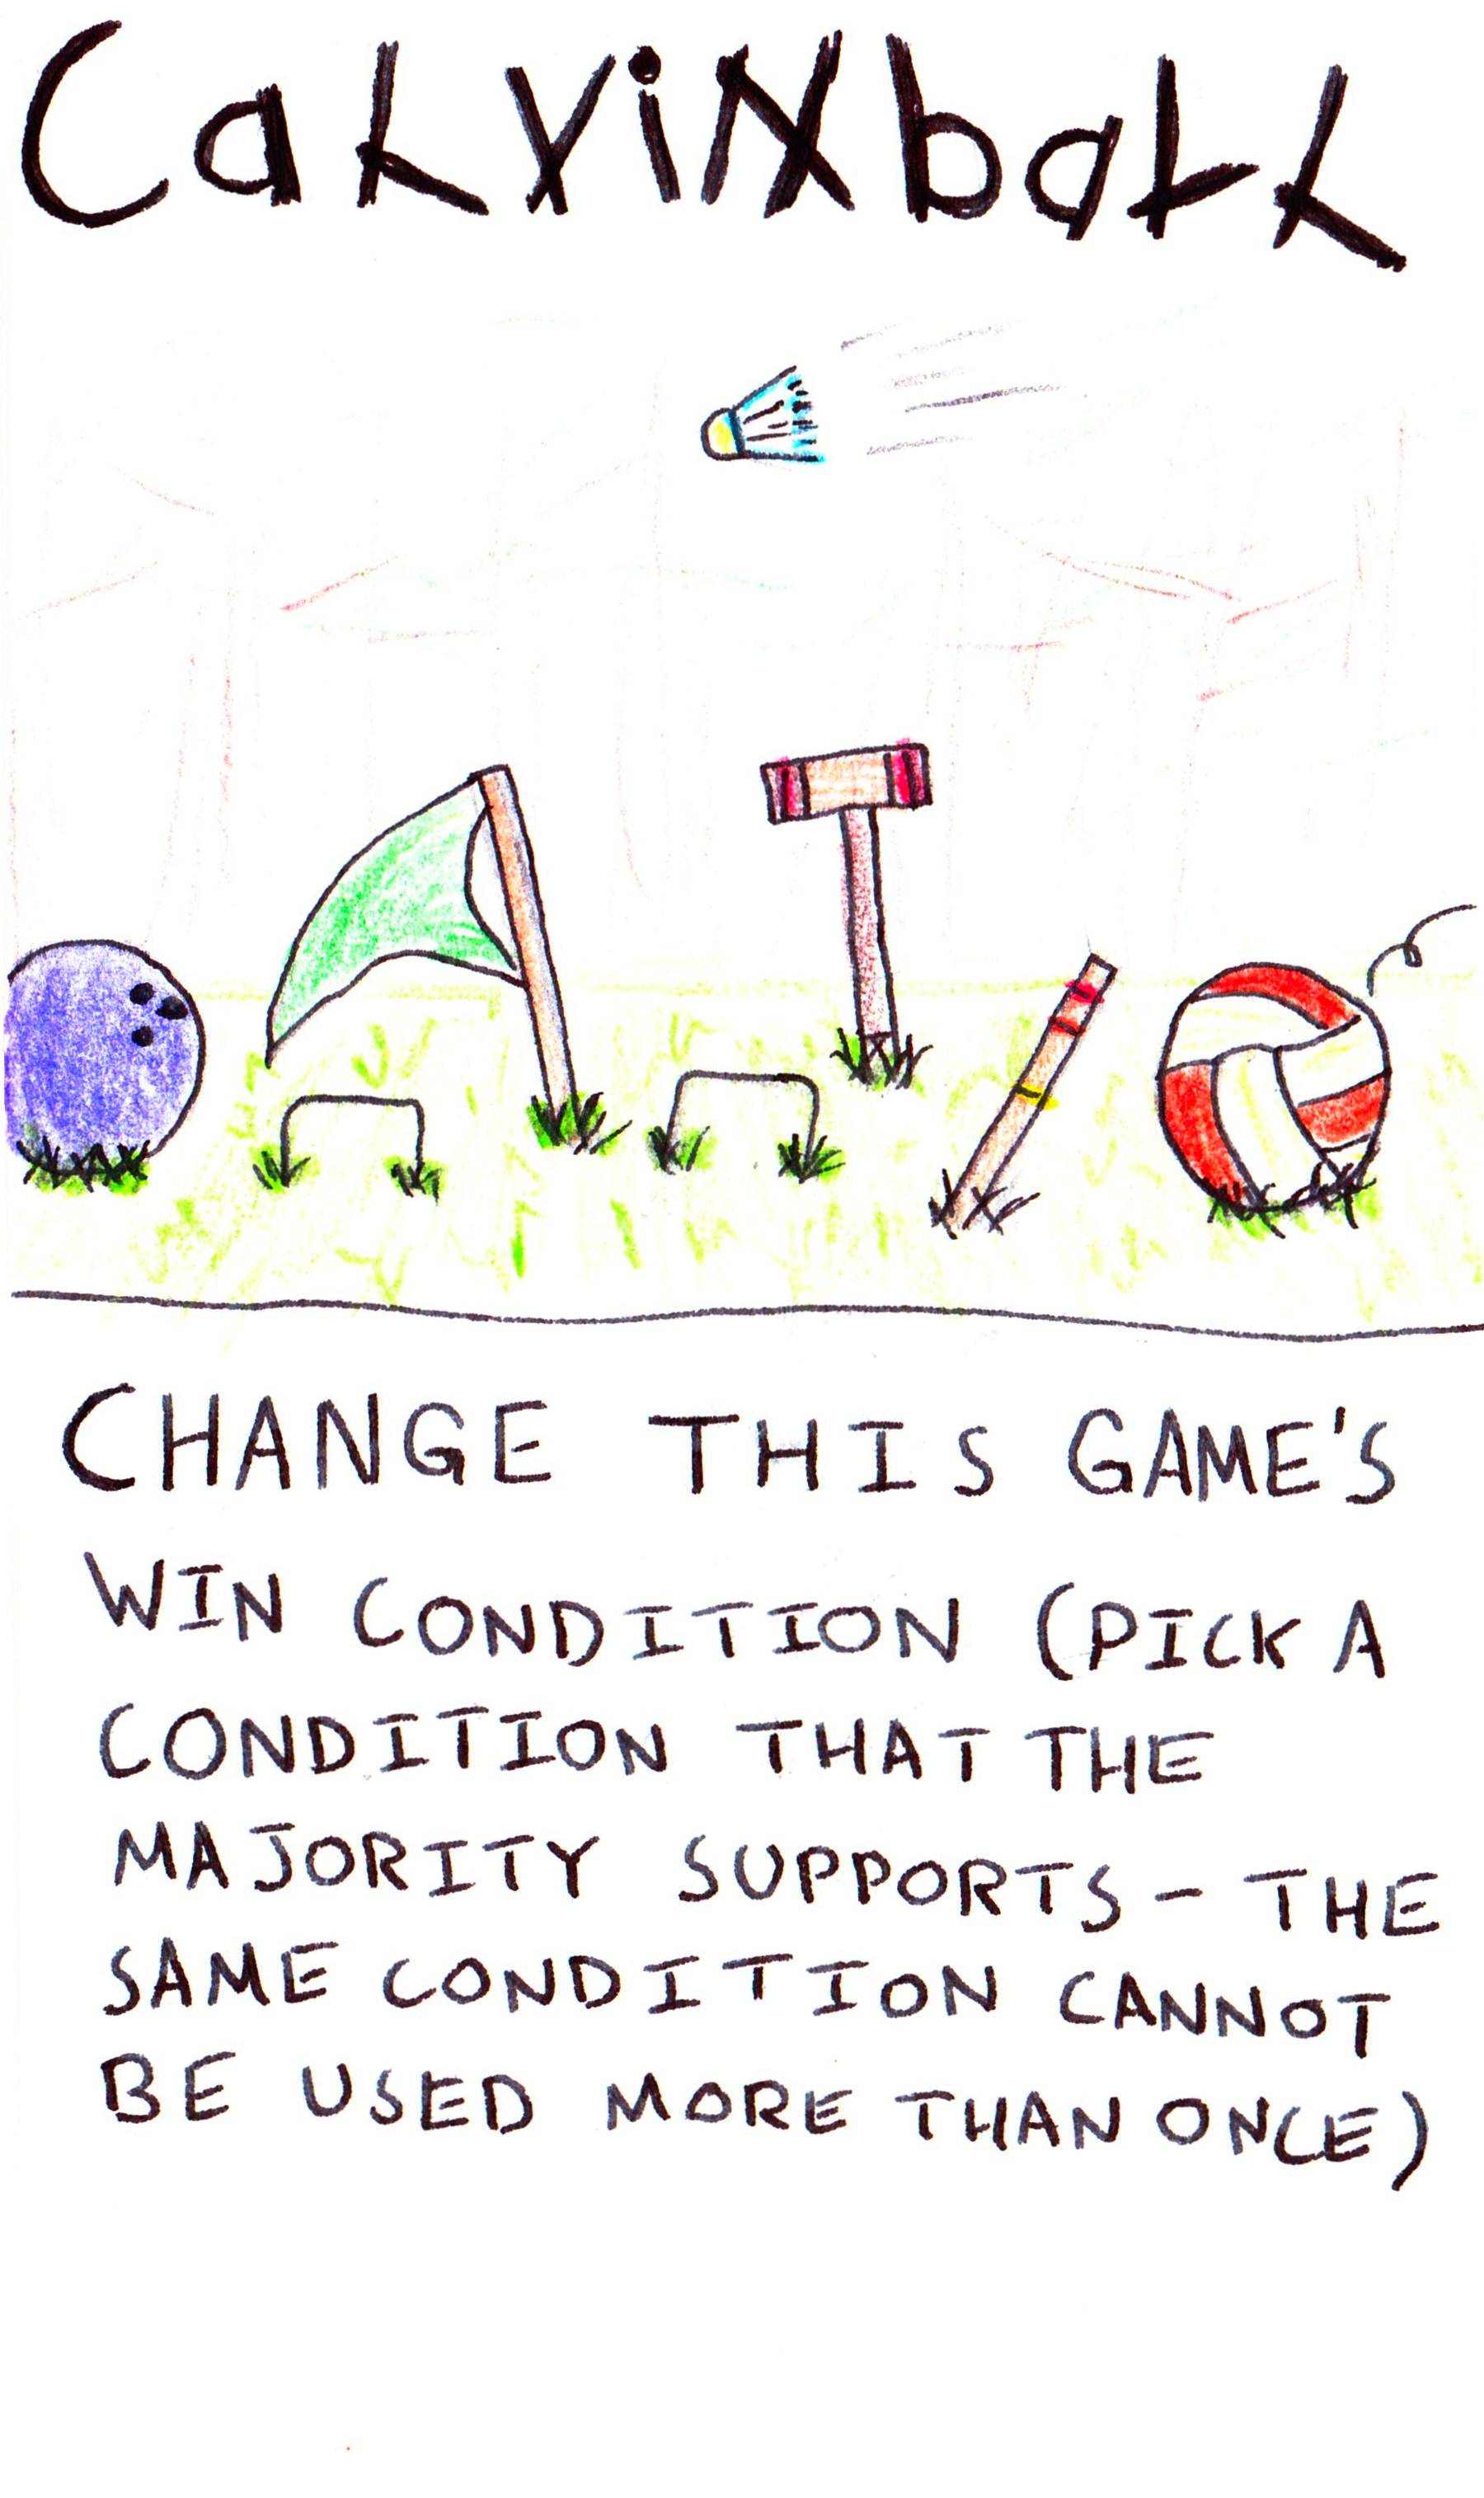 CaLViNbaLL
CHANGE THIS GAME'S
WIN CONDITION (PICK A
CONDITION THAT THE
MAJORITY SUPPORTS - THE
SAME CONDITION CANNOT
BE USED MORE THAN ONCE)